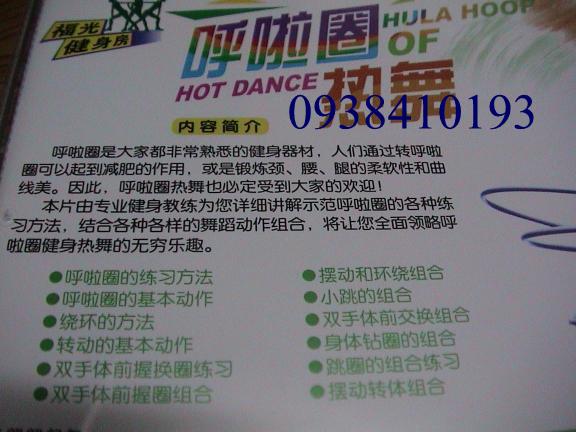 福光
健身房
呼啦圈 HULA HOOP
HOT DANCE OF
热舞
0938410193
内容简介
呼啦圈是大家都非常熟悉的健身器材，人们通过转呼啦
圈可以起到减肥的作用，或是锻炼颈、腰、腿的柔软性和曲
线美。因此，呼啦圈热舞也必定受到大家的欢迎！
本片由专业健身教练为您详细讲解示范呼啦圈的各种练
习方法，结合各种各样的舞蹈动作组合，将让您全面领略呼
啦圈健身热舞的无穷乐趣。
●呼啦圈的练习方法
●呼啦圈的基本动作
●绕环的方法
●转动的基本动作
●双手体前握换圈练习
●双手体前握圈组合
●摆动和环绕组合
●小跳的组合
●双手体前交换组合
●身体钻圈的组合
●跳圈的组合练习
●摆动转体组合